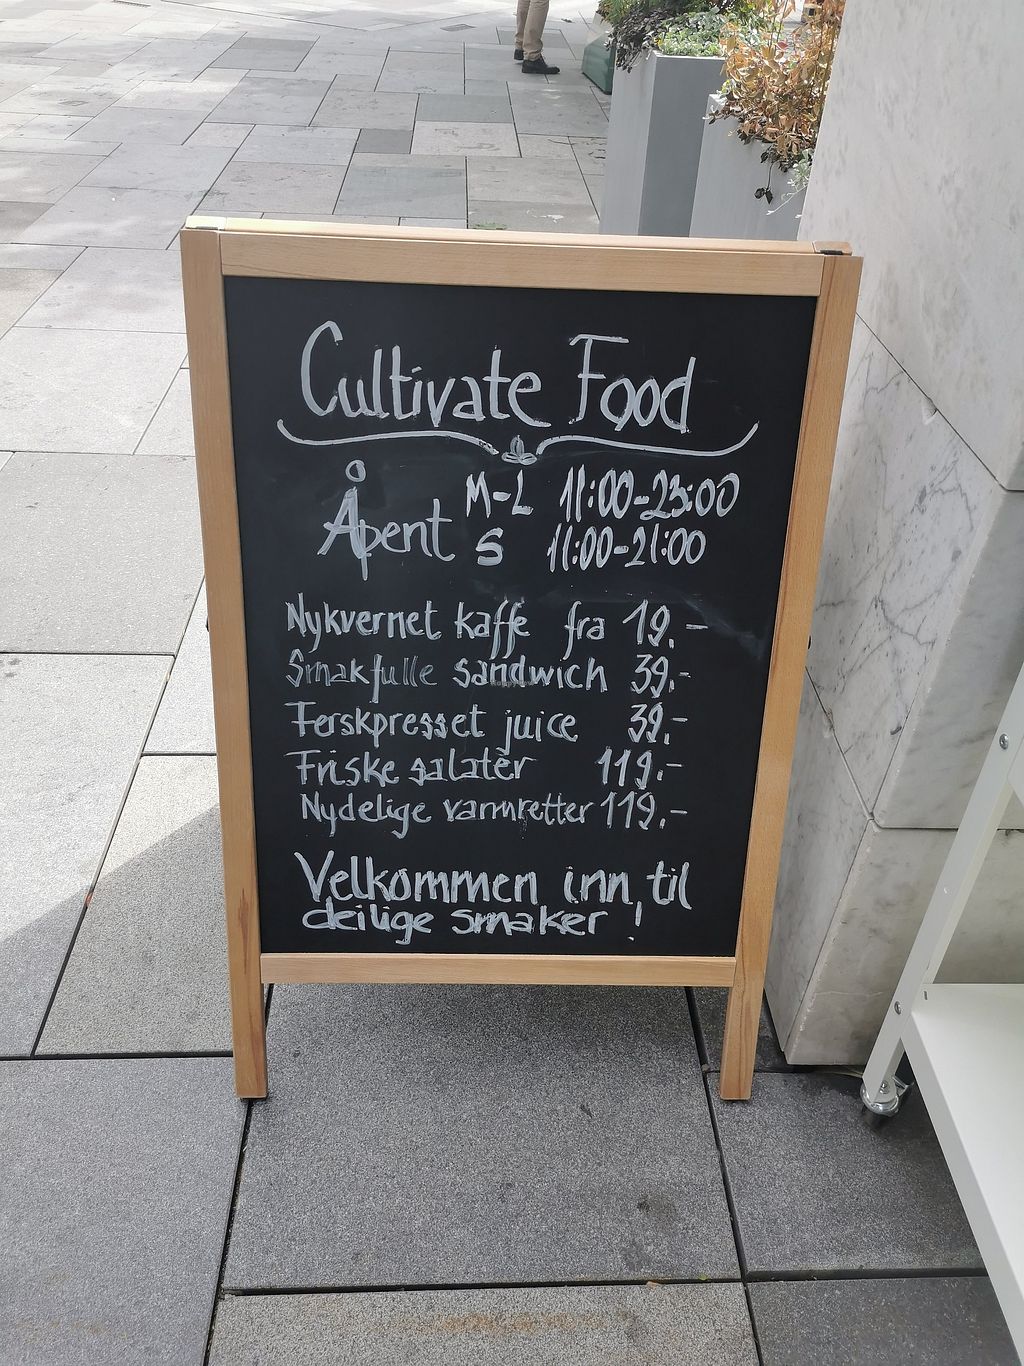 Cultivate Food
Åpent M-L 11:00-23:00
S 11:00-21:00
Nykvernet kaffe fra 19.-
Smakfulle sandwich 39.-
Ferskpresset juice 39.-
Friske salater 119.-
Nydelige varmretter 119.-
Velkommen inn, til
deilige smaker!